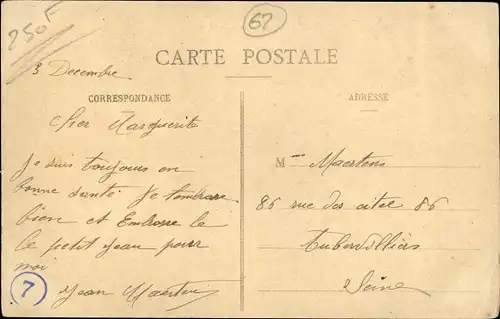 250F
62
CARTE POSTALE
3 Decembre
CORRESPONDANCE
ADRESSE
Cher Marguerite
Je suis toujours en
bonne santé. Je t'embrasse
bien et Embrasse le
le petit Jean pour
moi
Jean Maertens
7
Mme Maertens
86 rue des cités 86
Aubervilliers
Seine